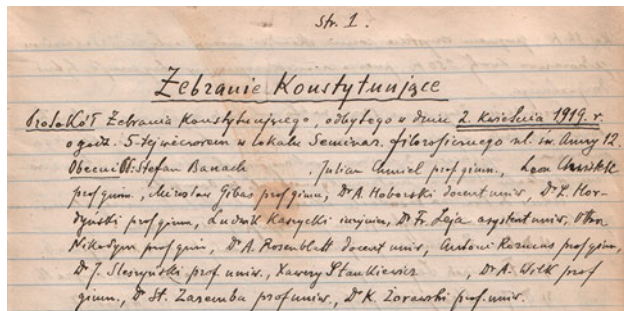 Str. 1.
Zebranie Konstytuujące
Protokół Zebrania Konstytuującego, odbytego w dniu 2. kwietnia 1919. r.
o godz. 5-tej wieczorem w lokalu Seminar. filozoficznego ul. św. Anny 12.
Obecni PP: Stefan Banach , Julian Chmiel prof gimn., Leon Chwistek
prof gimn., Mirosław Gibas prof gimn, Dr A. Hoborski docent uniw, Dr L. Hor-
dyński prof gimn, Ludwik Kaszycki inżynier, Dr Fr. Leja asystent uniw, Otton
Nikodym prof gimn, Dr A. Rosenblatt docent uniw, Antoni prof gimn,
Dr J. Sleszyński prof. uniw., Xawery Stankiewicz , Dr A. Wilk prof
gimn., Dr St. Zaremba prof uniw., Dr K. Żorawski prof. uniw.